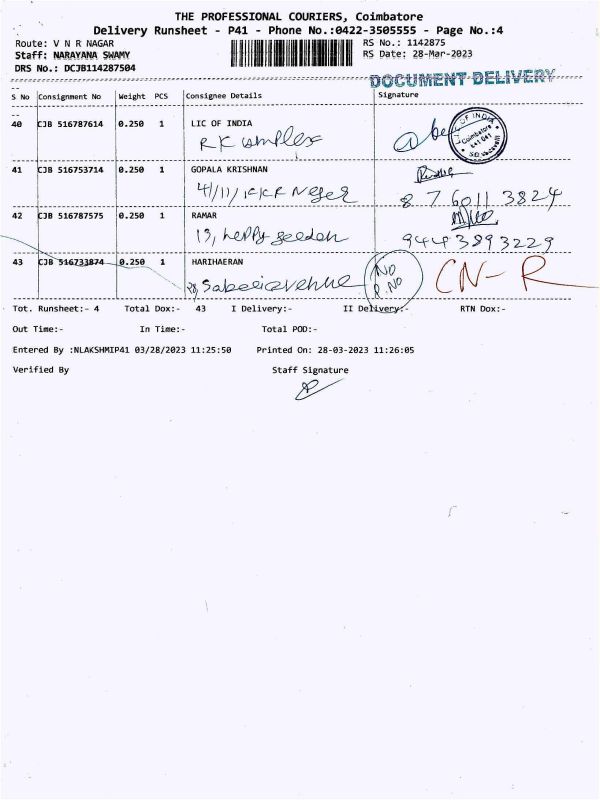 THE PROFESSIONAL COURIERS, Coimbatore
Delivery Runsheet - P41 - Phone No.:0422-3505555 - Page No.:4
Route: V N R NAGAR
RS No.: 1142875
Staff: NARAYANA SWAMY
RS Date: 28-Mar-2023
DRS No.: DCJB114287504
DOCUMENT DELIVERY
S No Consignment No Weight PCS Consignee Details Signature
40 CJB 516787614 0.250 1 LIC OF INDIA
R K complex
41 CJB 516753714 0.250 1 GOPALA KRISHNAN
8 7 6011 3824
42 CJB 516787575 0.250 1 RAMAR
9443893229
43 CJB 516733874 0.250 1 HARIHAERAN
No P. No CN-R
Tot. Runsheet:- 4 Total Dox:- 43 I Delivery:- II Delivery:- RTN Dox:-
Out Time:- In Time:- Total POD:-
Entered By :NLAKSHMIP41 03/28/2023 11:25:50 Printed On: 28-03-2023 11:26:05
Verified By Staff Signature